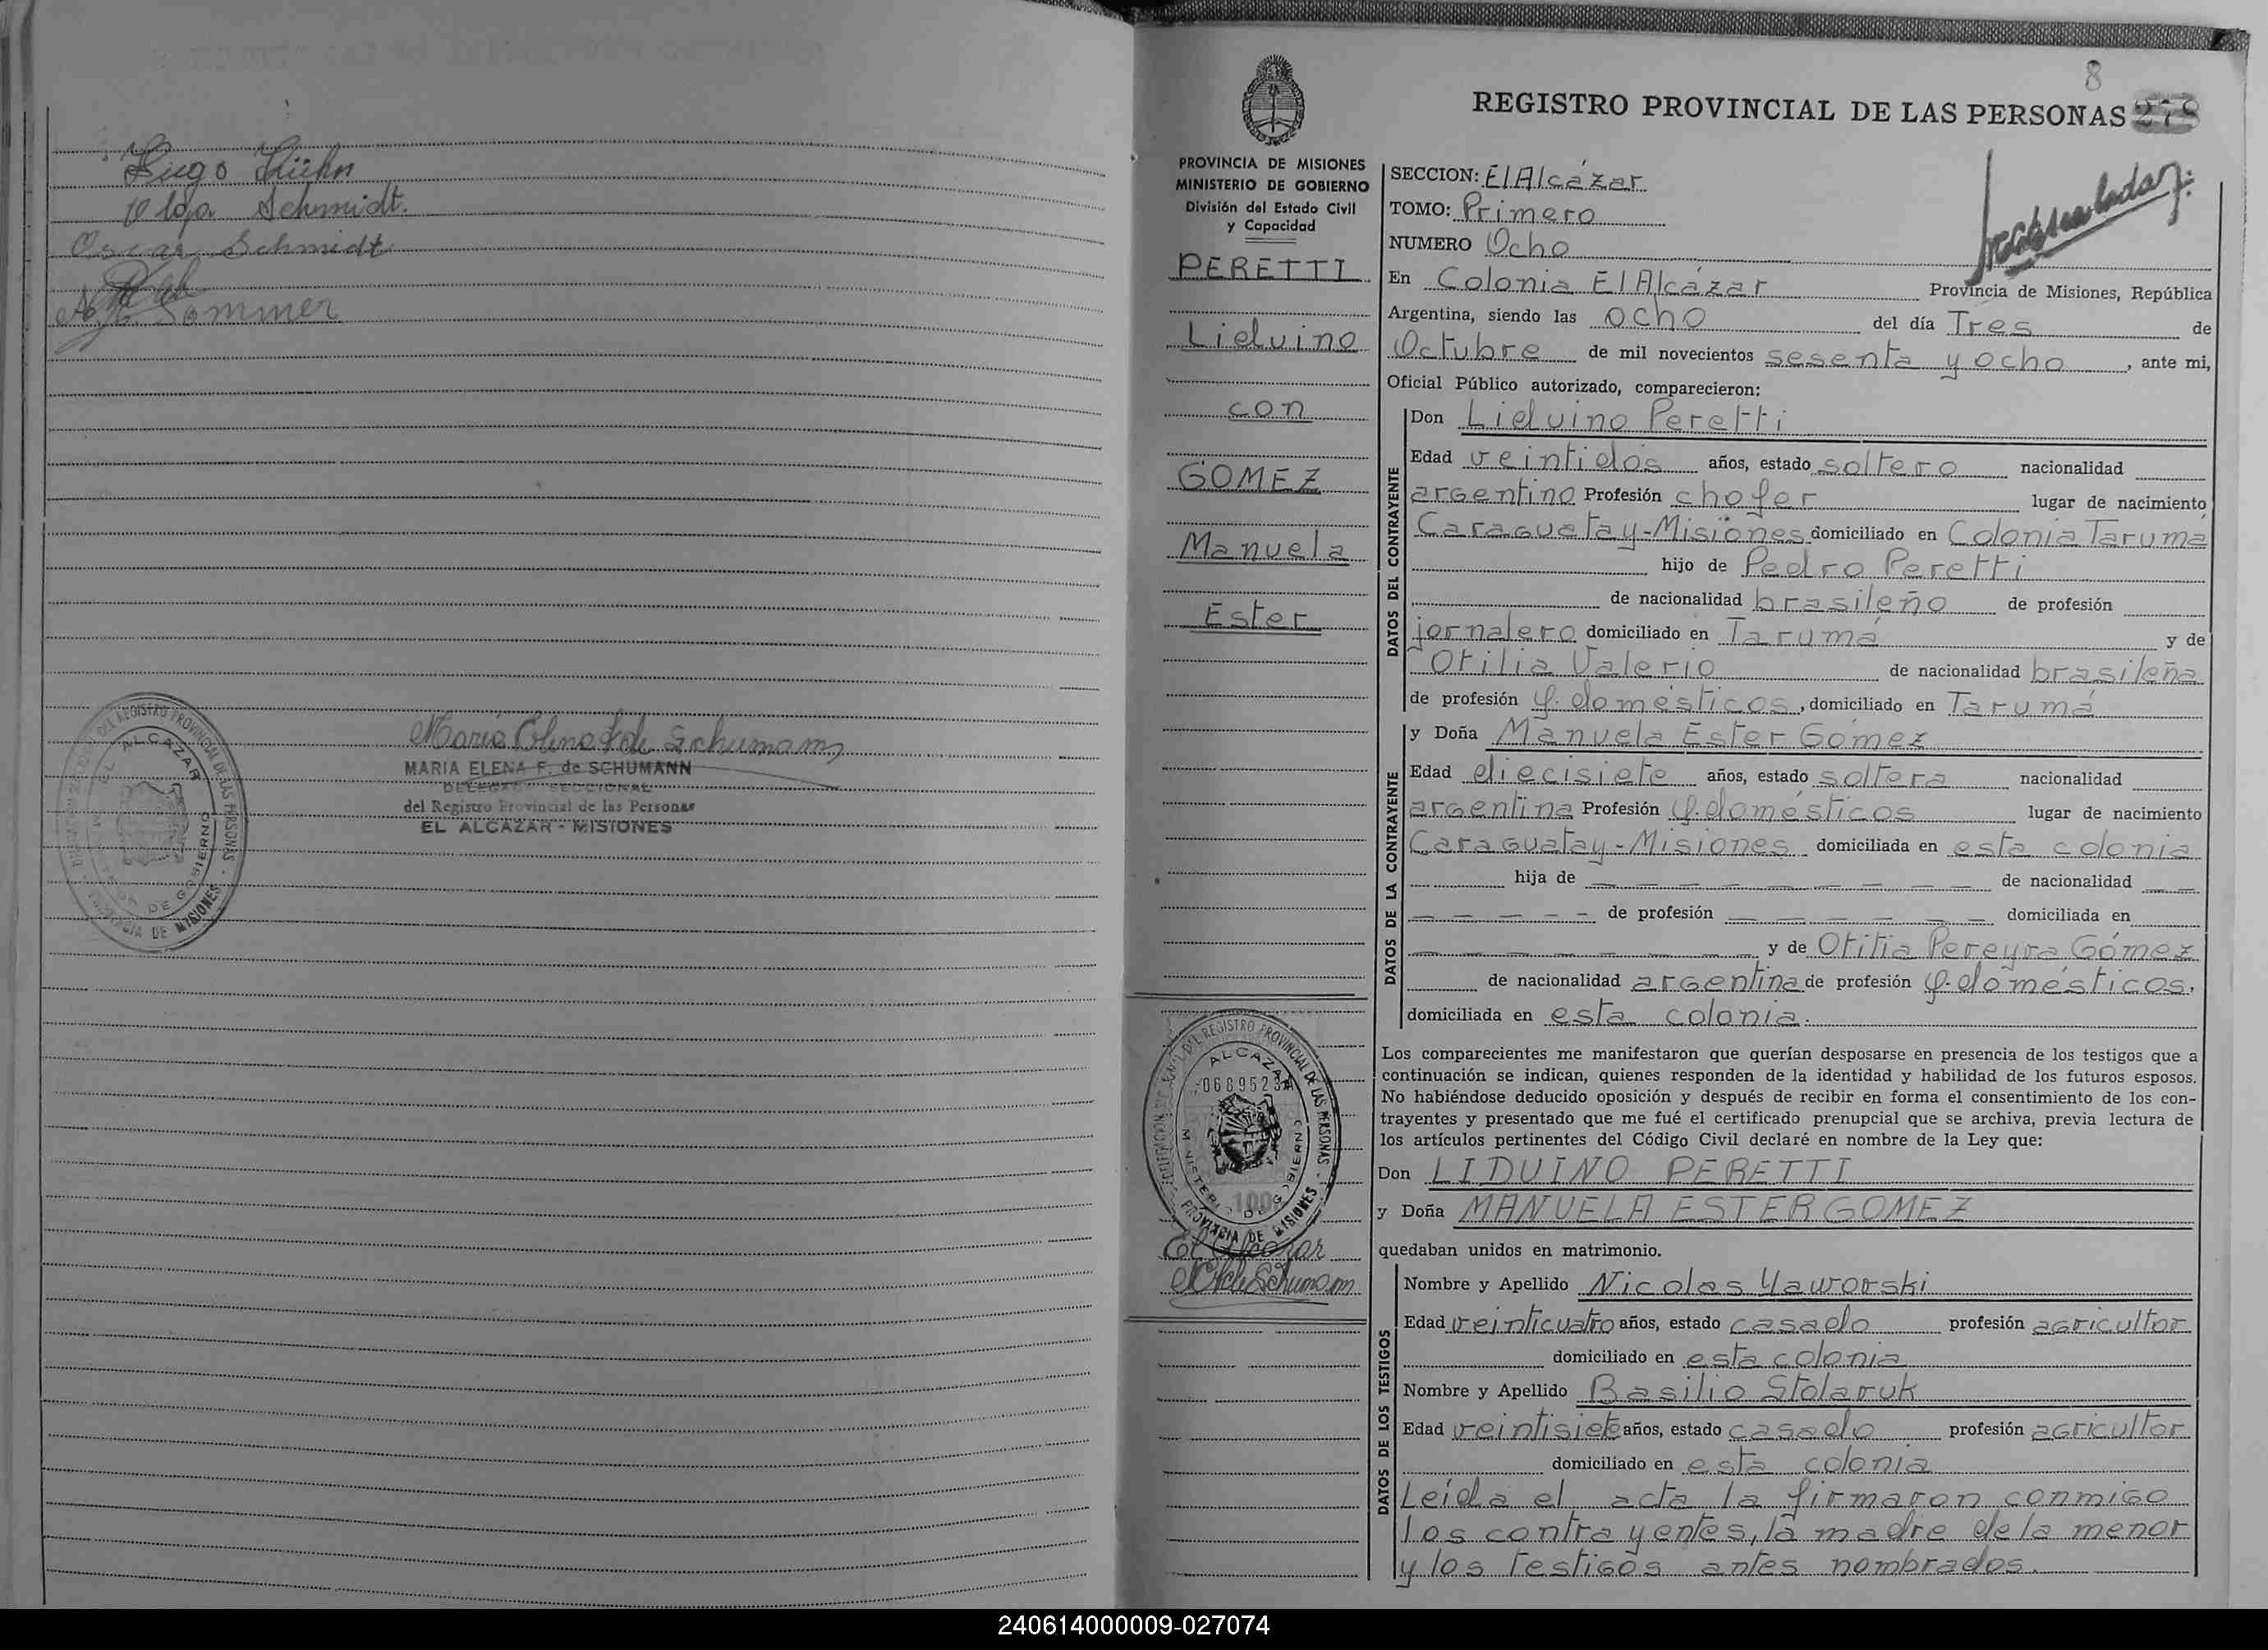 Hugo Kühn
Olga Schmidt.
Oscar Schmidt
Sommer
DEL REGISTRO PROVINCIAL DE LAS PERSONAS
EL ALCAZAR
DE GOBIERNO
PROVINCIA DE MISIONES
Maria Elena F de Schumann
MARIA ELENA F. de SCHUMANN
DELEGADO SECCIONAL
del Registro Provincial de las Personas
EL ALCAZAR - MISIONES
8
REGISTRO PROVINCIAL DE LAS PERSONAS 278
PROVINCIA DE MISIONES
MINISTERIO DE GOBIERNO
División del Estado Civil
y Capacidad
PERETTI
Liduino
con
GOMEZ
Manuela
Ester
DEL REGISTRO PROVINCIAL DE LAS PERSONAS
ALCAZAR
068952
MINISTERIO DE GOBIERNO
100
PROVINCIA DE MISIONES
El Alcazar
SECCION: El Alcázar
TOMO: Primero
NUMERO Ocho
En Colonia El Alcázar Provincia de Misiones, República
Argentina, siendo las ocho del día Tres de
Octubre de mil novecientos sesenta y ocho, ante mi,
Oficial Público autorizado, comparecieron:
DATOS DEL CONTRAYENTE
Don Liduino Peretti
Edad veintidós años, estado soltero nacionalidad
argentino Profesión chofer lugar de nacimiento
Caraguatay-Misiones domiciliado en Colonia Tarumá
hijo de Pedro Peretti
de nacionalidad brasileño de profesión
jornalero domiciliado en Tarumá y de
Otilia Valerio de nacionalidad brasileña
de profesión q. domésticos, domiciliado en Tarumá
DATOS DE LA CONTRAYENTE
y Doña Manuela Ester Gómez
Edad diecisiete años, estado soltera nacionalidad
argentina Profesión q. domésticos lugar de nacimiento
Caraguatay-Misiones domiciliada en esta colonia
hija de — — — — — — — — — de nacionalidad — —
— — — — — de profesión — — — — — — domiciliada en
— — — — — — — — y de Otitia Pereyra Gómez
de nacionalidad argentina de profesión q. domésticos,
domiciliada en esta colonia.
Los comparecientes me manifestaron que querían desposarse en presencia de los testigos que a
continuación se indican, quienes responden de la identidad y habilidad de los futuros esposos.
No habiéndose deducido oposición y después de recibir en forma el consentimiento de los con-
trayentes y presentado que me fué el certificado prenupcial que se archiva, previa lectura de
los artículos pertinentes del Código Civil declaré en nombre de la Ley que:
Don LIDUINO PERETTI
y Doña MANUELA ESTER GOMEZ
quedaban unidos en matrimonio.
DATOS DE LOS TESTIGOS
Nombre y Apellido Nicolas Yaworski
Edad veinticuatro años, estado casado profesión agricultor
domiciliado en esta colonia
Nombre y Apellido Basilio Stolaruk
Edad veintisiete años, estado casado profesión agricultor
domiciliado en esta colonia
Leída el acta la firmaron conmigo
los contrayentes, la madre de la menor
y los testigos antes nombrados.
240614000009-027074